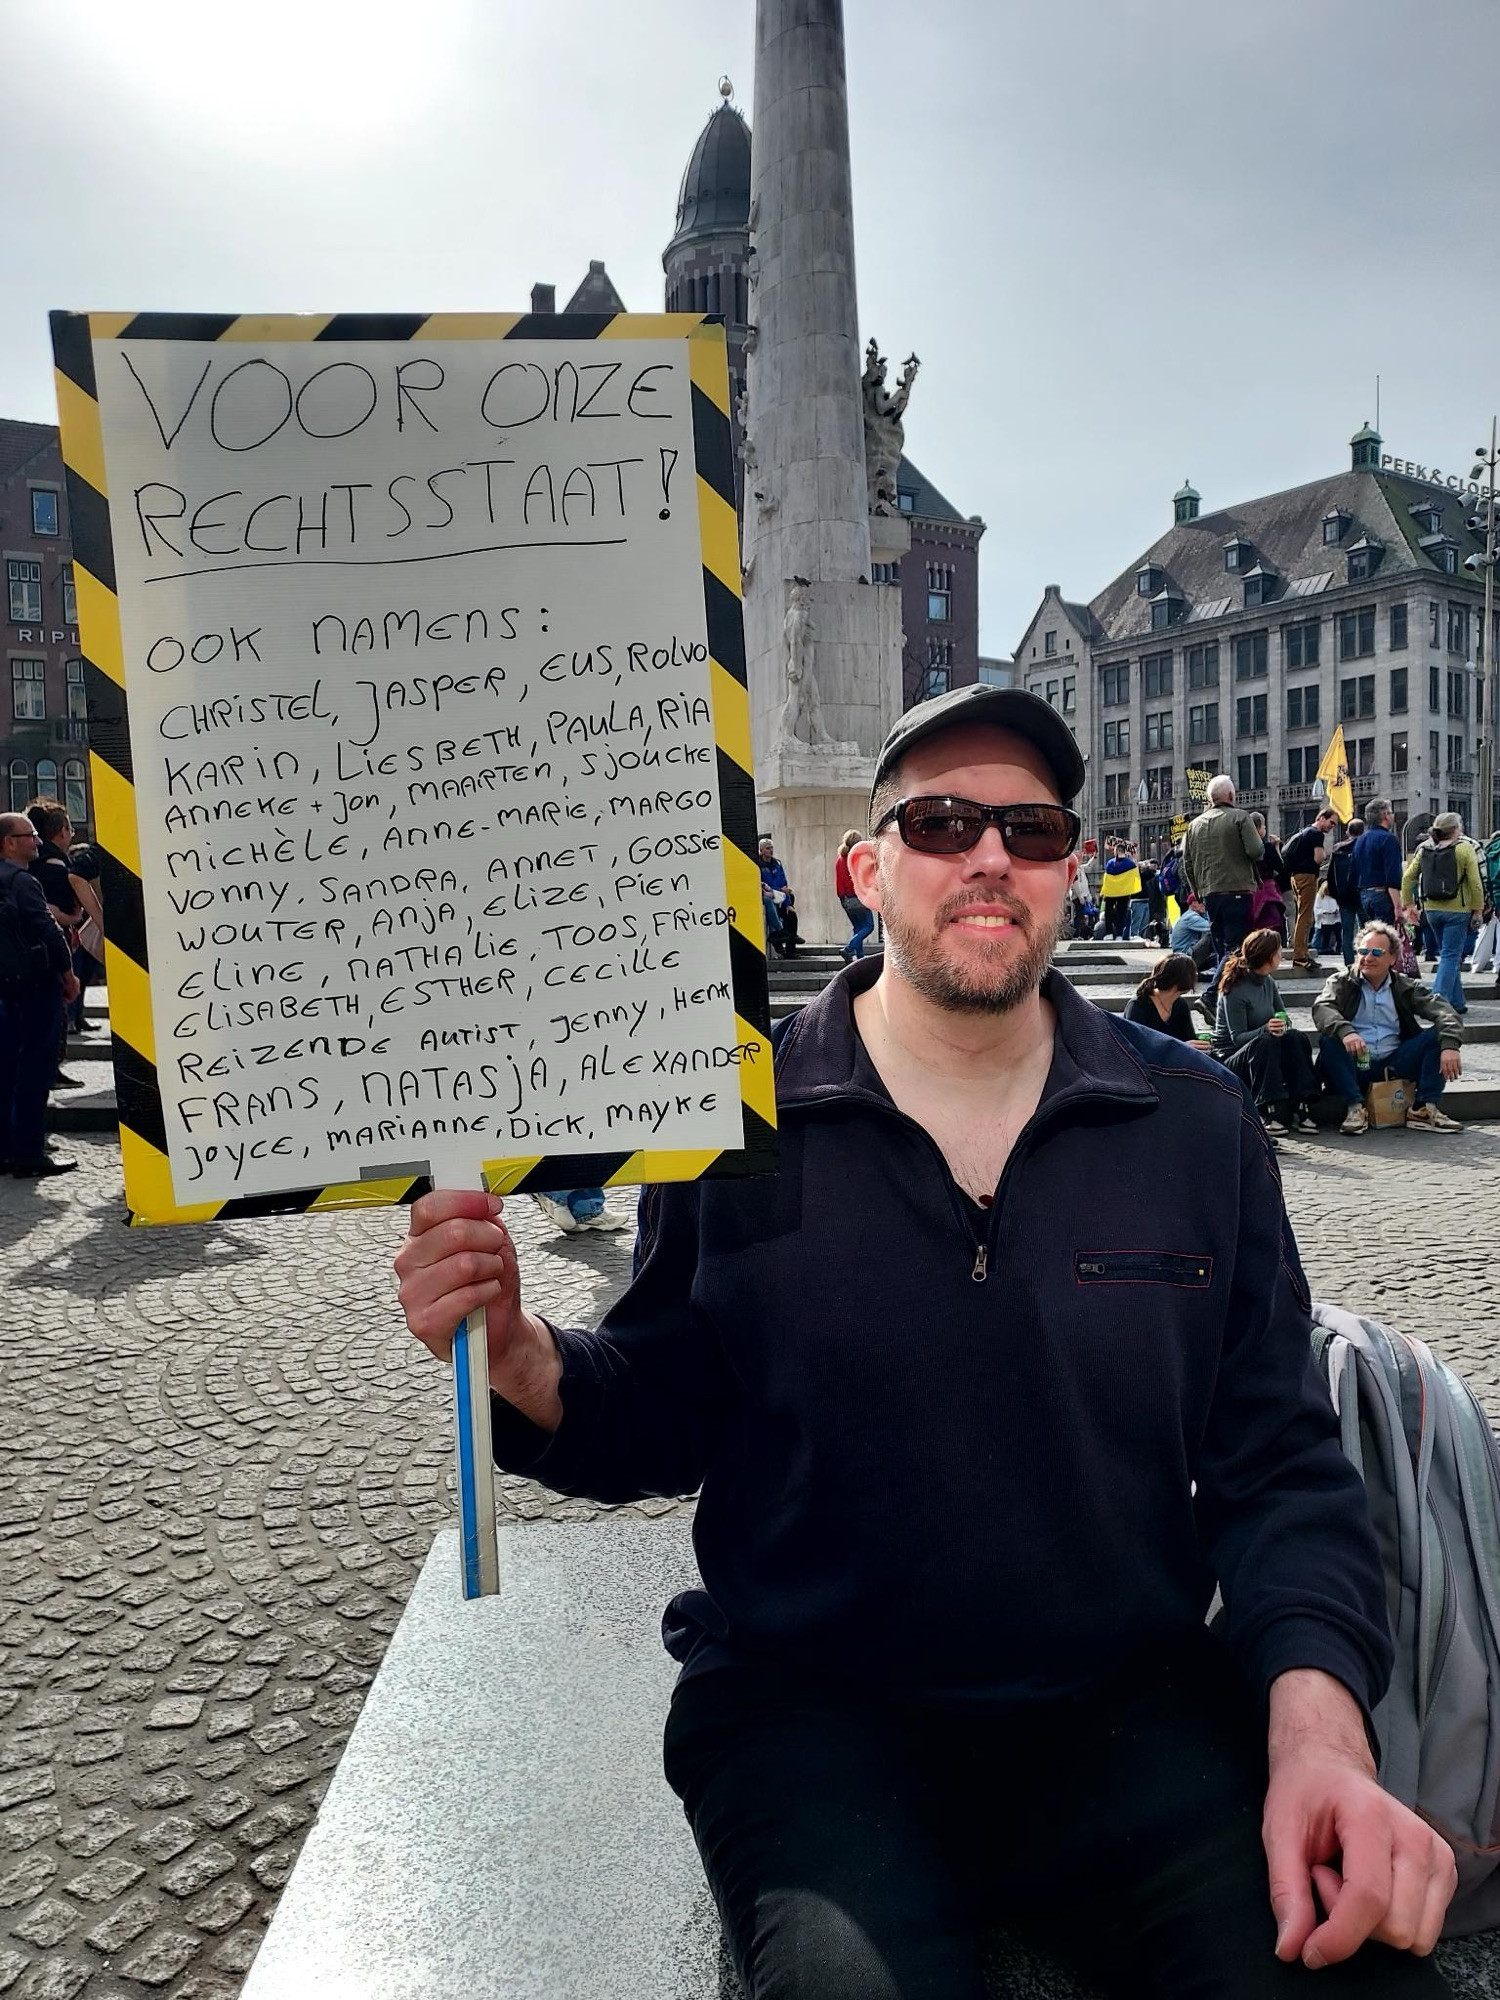 VOOR ONZE
RECHTSSTAAT!
OOK NAMENS:
CHRISTEL, JASPER, EUS, ROLVO
KARIN, LIESBETH, PAULA, RIA
ANNEKE + JON, MAARTEN, SJOUCKE
MICHÈLE, ANNE-MARIE, MARGO
VONNY, SANDRA, ANNET, GOSSIE
WOUTER, ANJA, ELIZE, PIEN
ELINE, NATHALIE, TOOS, FRIEDA
ELISABETH, ESTHER, CECILLE
REIZENDE AUTIST, JENNY, HENK
FRANS, NATASJA, ALEXANDER
JOYCE, MARIANNE, DICK, MAYKE
PEEK & CLOPP
RIPL